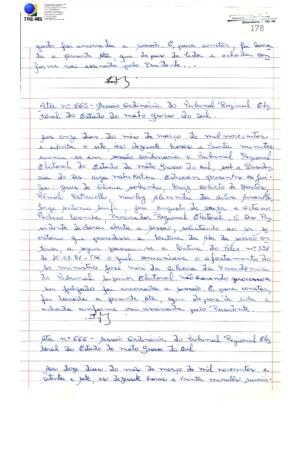 TRE-MS
178
gado foi encerrada a sessão. E, para constar, foi lavra
da a presente Ata, que depois de lida e achada con
forme vai assinada pelo Presidente...
Ata nº 665 - Sessão Ordinária do Tribunal Regional Elei
toral do Estado de Mato Grosso do Sul.
Aos onze dias do mês de março de mil novecentos
e oitenta e sete, às dezessete horas e trinta minutos
reuniu-se em sessão ordinária o Tribunal Regional
Eleitoral do Estado de Mato Grosso do Sul, sob a Presidên
cia do Des. presentes os juí
zes: Jesus de Oliveira Sobrinho,
Rêmolo Letteriello,
Jorge Antonio
Procurador Regional Eleitoral. O Des. Pre
sidente declarou aberta a sessão, solicitando ao sr. se
cretário que procedesse a leitura da ata da sessão an
terior, a seguir passou-se a leitura do Telex nº
de 10.03.87-TSE o qual comunicava o afastamento do
Sr. Ministro José Neri da Silveira da Presidência
do Tribunal Superior Eleitoral. Não havendo processos
em julgado foi encerrada a sessão. E para constar,
foi lavrada a presente Ata, que depois de lida e
achada conforme vai assinada pelo Presidente.
Ata nº 666 - Sessão Ordinária do Tribunal Regional Elei
toral do Estado de Mato Grosso do Sul
Aos doze dias do mês de março de mil novecentos e
oitenta e sete, às dezessete horas e trinta minutos reuniu-